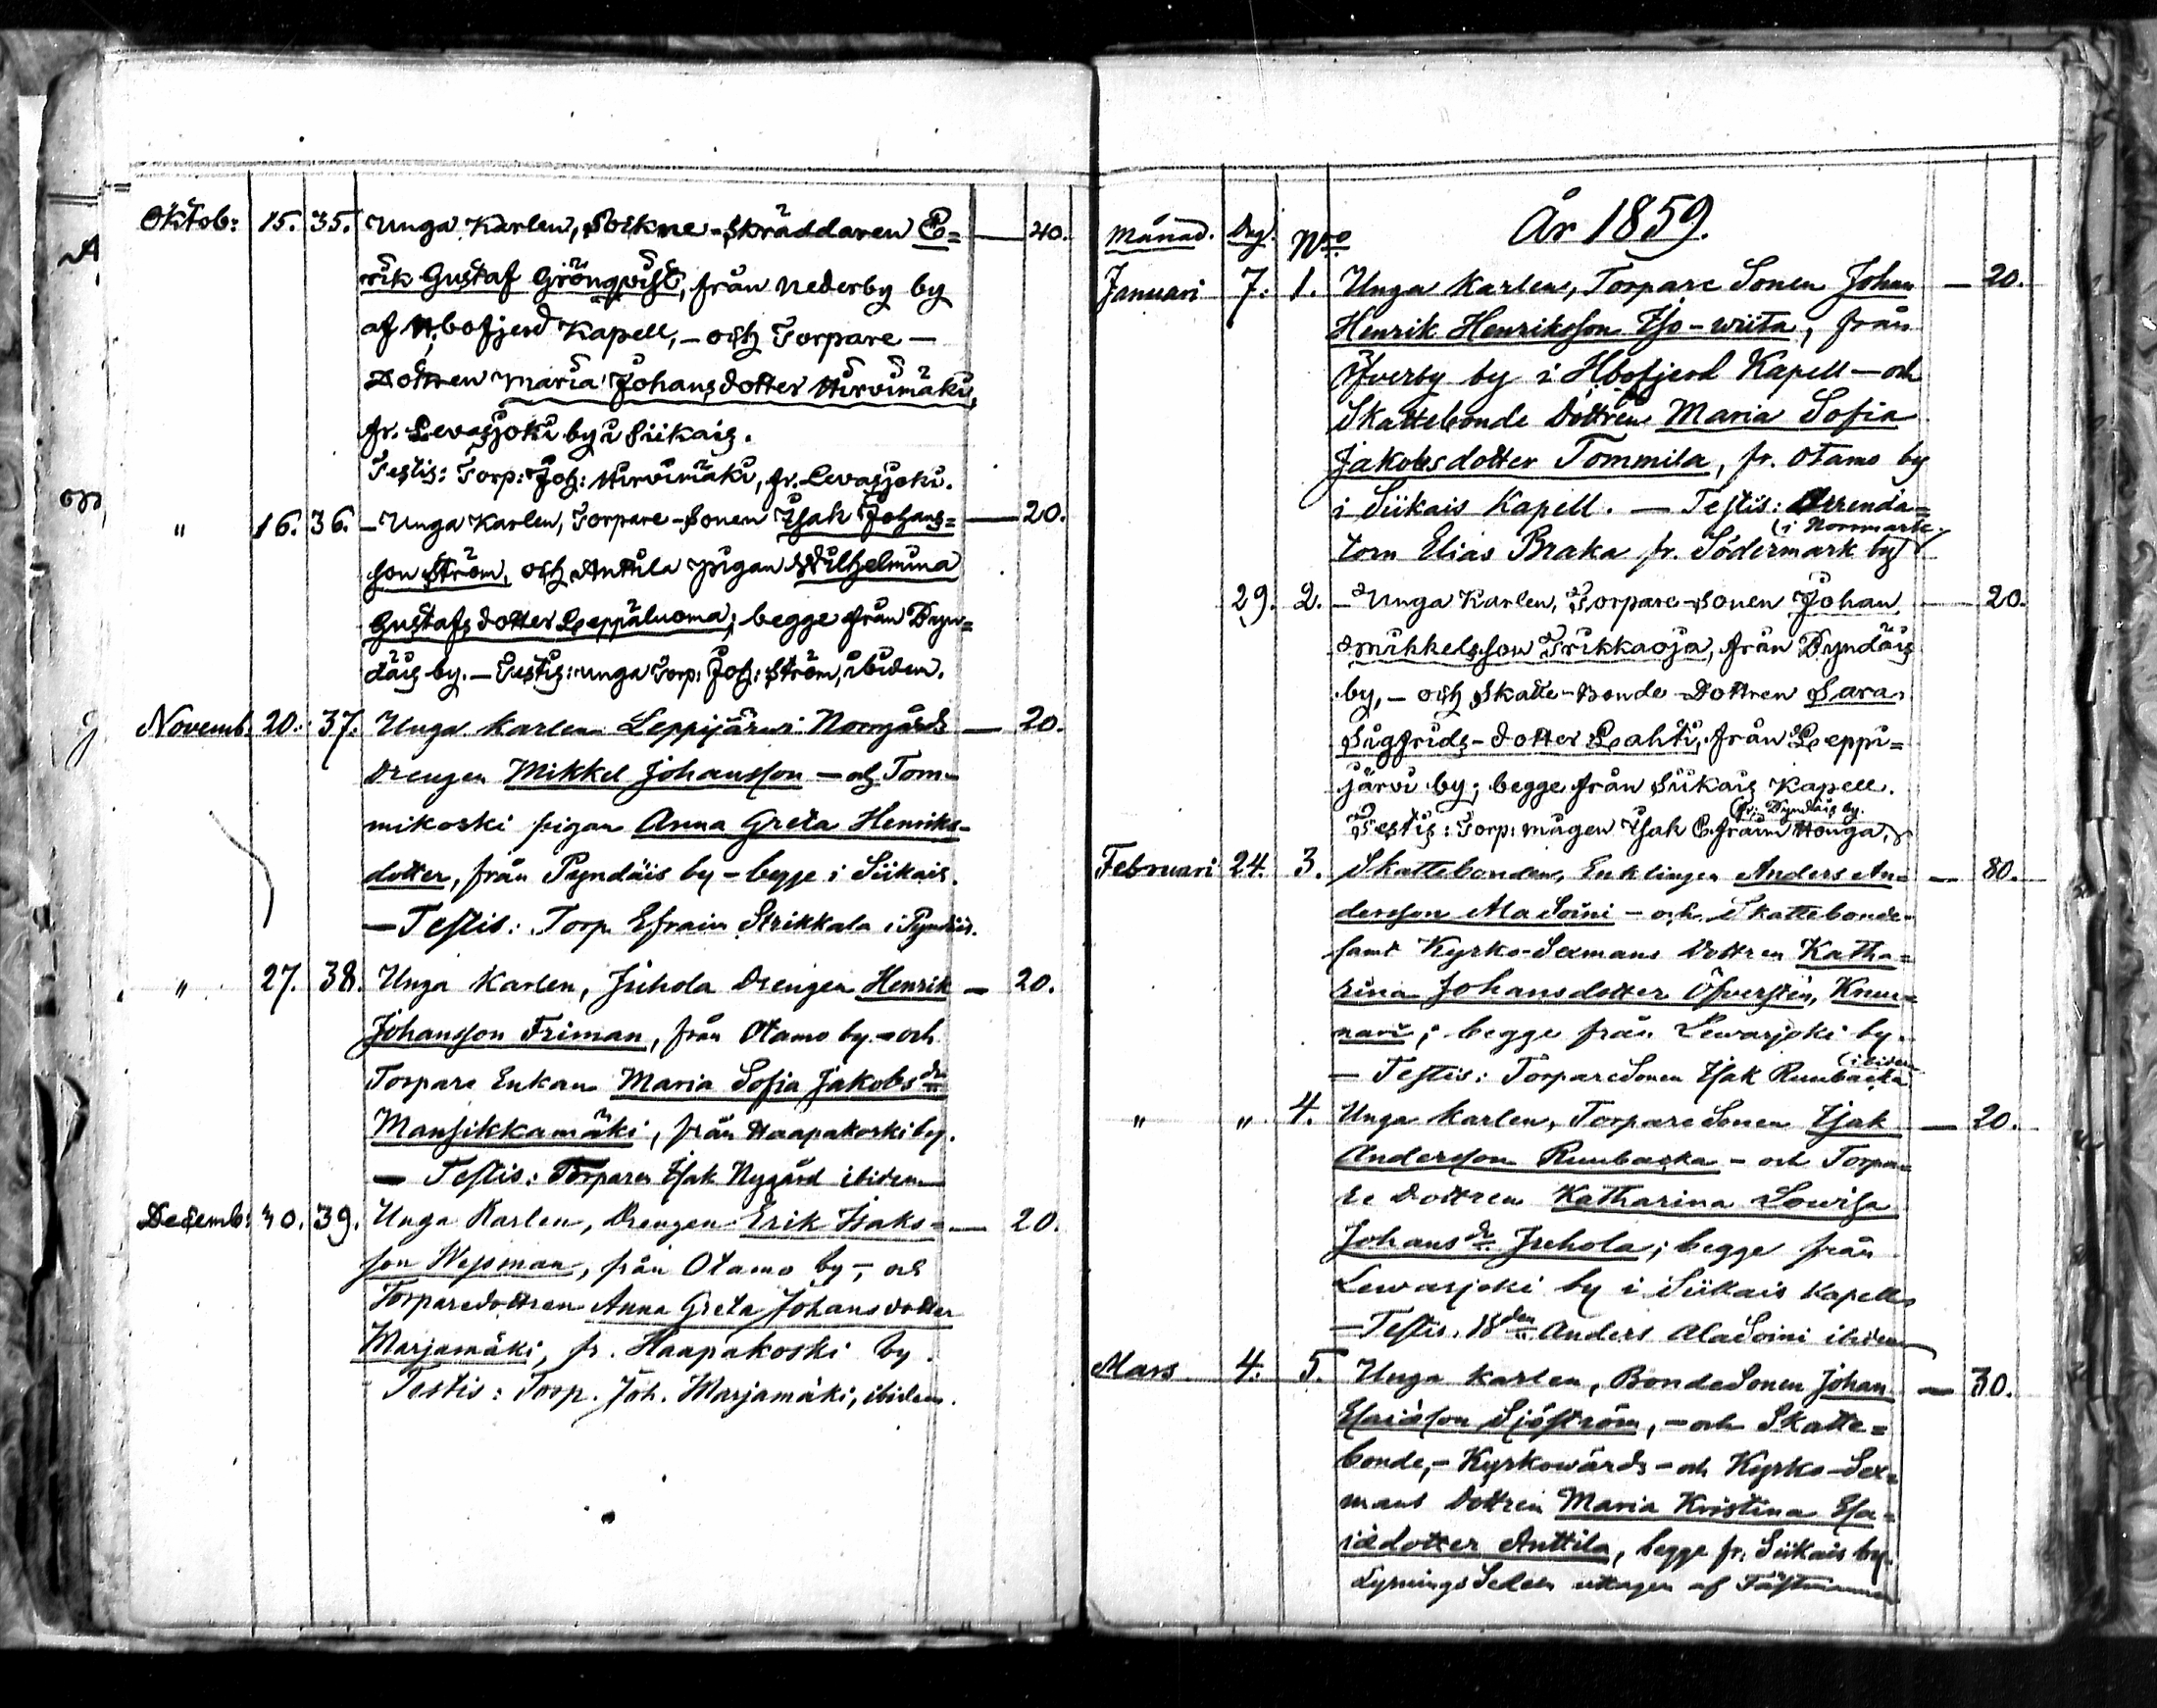 Oktob: 15. 35. Unga Karlen, Sockne-Skräddaren E= — 40.
rik Gustaf Grönqvist, från Nederby by
af Hbofjerd Kapell, – och Torpare –
Dottren Maria Johansdotter Hirvimäki,
fr. Levasjoki by i Siikais.
Testis: Torp: Joh: Hirvimäki, fr. Levasjoki.
" 16. 36. – Unga Karlen, Torpare-Sonen Isak Johans= — 20.
son Ström, och Anttila pigan Wilhelmina
Gustafsdotter Leppäluoma; begge från Pyn=
däis by. – Testis: unga Torp: Joh: Ström, ibidem.
Novemb. 20. 37. Unga Karlen Leppijärvi Norrgårds — 20.
Drengen Mikkel Johansson – och Tom=
mikoski pigan Anna Greta Henriks=
dotter, från Pyndäis by – begge i Siikais.
— Testis: Torp. Efraim Strikkala i Pyndäis.
" 27. 38. Unga Karlen, Juhola Drengen Henrik — 20.
Johansson Friman, från Otamo by. – och
Torpare Enkan Maria Sofia Jakobs dr
Mansikkamäki, från Haapakoski by.
— Testis: Torparen Isak Nygård ibidem
Decemb: 30. 39. Unga Karlen, Drengen Erik Isaks= — 20.
son Wessman, från Otamo by –, och
Torparedottren Anna Greta Johansdotter
Marjamäki, fr. Haapakoski by.
Testis: Torp. Joh. Marjamäki, ibidem.
År 1859.
Månad. Dag. No.
Januari 7. 1. Unga Karlen, Torpare Sonen Johan — 20.
Henrik Henriksson Iso-wiita, från
Öfverby by i Hbofjerd Kapell – och
Skattebonde Dottren Maria Sofia
Jakobsdotter Tommila, fr. Otamo by
i Siikais Kapell. — Testis: Arrenda=
(i Norrmark.
torn Elias Braka fr. Södermark by
29. 2. – Unga Karlen, Torpare-Sonen Johan — 20.
Mikkelsson Trikkaoja, från Pyndäis
by, – och Skatte-Bonde-Dottren Sara
Sigfrids-dotter Lahti, från Leppi=
järvi by; begge från Siikais Kapell.
(fr: Pyndäis by.
Testis: Torp: mågen Isak Efraim Honga,
Februari 24. 3. Skattebonden, Enklingen Anders An= — 80.
dersson Ala Soini – och Skattebonde
samt Kyrko-Sexmans Dottren Katha=
rina Johansdotter Öfversten, Knuu=
nari; begge från Lewasjoki by.
(ibidem
— Testis: TorpareSonen Isak Ruubacka
" " 4. Unga Karlen, TorpareSonen Isak — 20.
Andersson Ruubacka – och Torpa=
re Dottren Katharina Lowisa
Johans dr Juhola; begge från
Lewasjoki by i Siikais Kapell
— Testis. 18den Anders AlaSoini ibidem
Mars 4. 5. Unga Karlen, BondeSonen Johan — 30.
Esaiæson Sjöström, – och Skatte=
bonde, – Kyrkowärds – och Kyrko-Sex=
mans Dottren Maria Kristina Esa=
iædotter Anttila, begge fr. Siikais by.
LysningsSedeln uttagen af Fästmannen